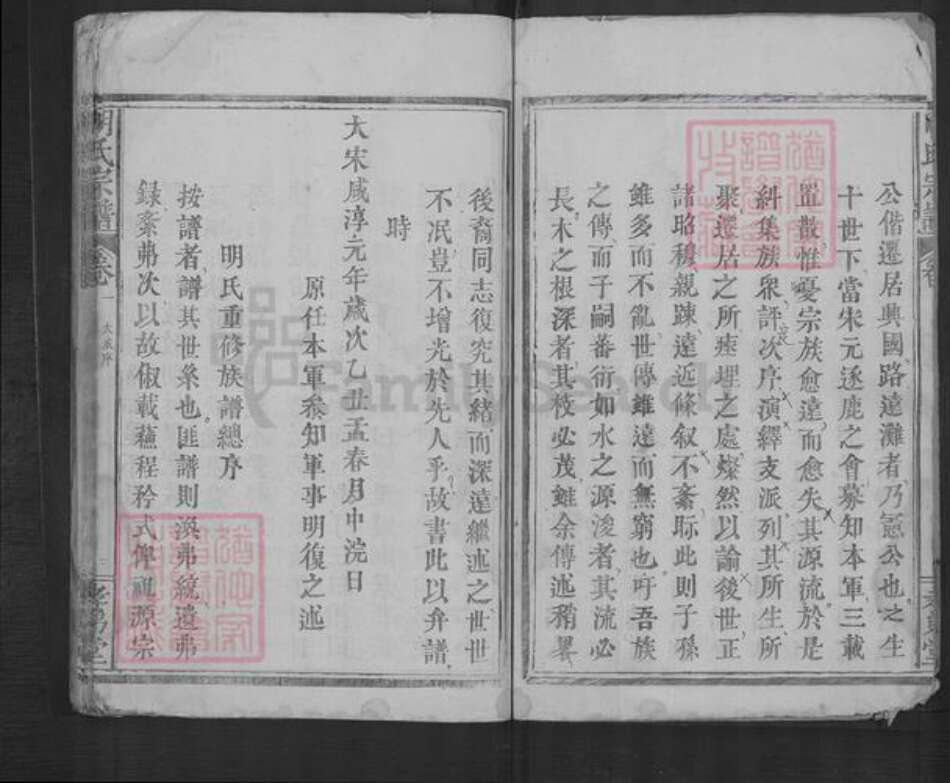 公偕遷居興國路遠灘者乃愿公也之生
十世下當宋元逐鹿之會募知本軍三載
置散惟憂宗族愈遠而愈失其源流於是
糾集族眾評次序演繹支派列其所生所
聚遷居之所瘞埋之處燦然以諭後世正
諸昭穆親踈遠近條叙不紊眎此則子孫
雖多而不亂世傳雖遠而無窮也吁吾族
之傳而子嗣蕃衍如水之源浚者其流必
長木之根深者其枝必茂雖余傳述稍畧
後裔同志復究其緒而深遠繼述之世世
不泯豈不增光於先人乎故書此以弁譜
時
大宋咸淳元年歲次乙丑孟春月中浣日
原任本軍叅知軍事明復之述
明氏重修族譜總序
按譜者譜其世系也匪譜則渙弗統遺弗
錄紊弗次以故俶載蘊程矜式俾祖源宗
明氏宗譜
卷一
大宋序
FamilySearch